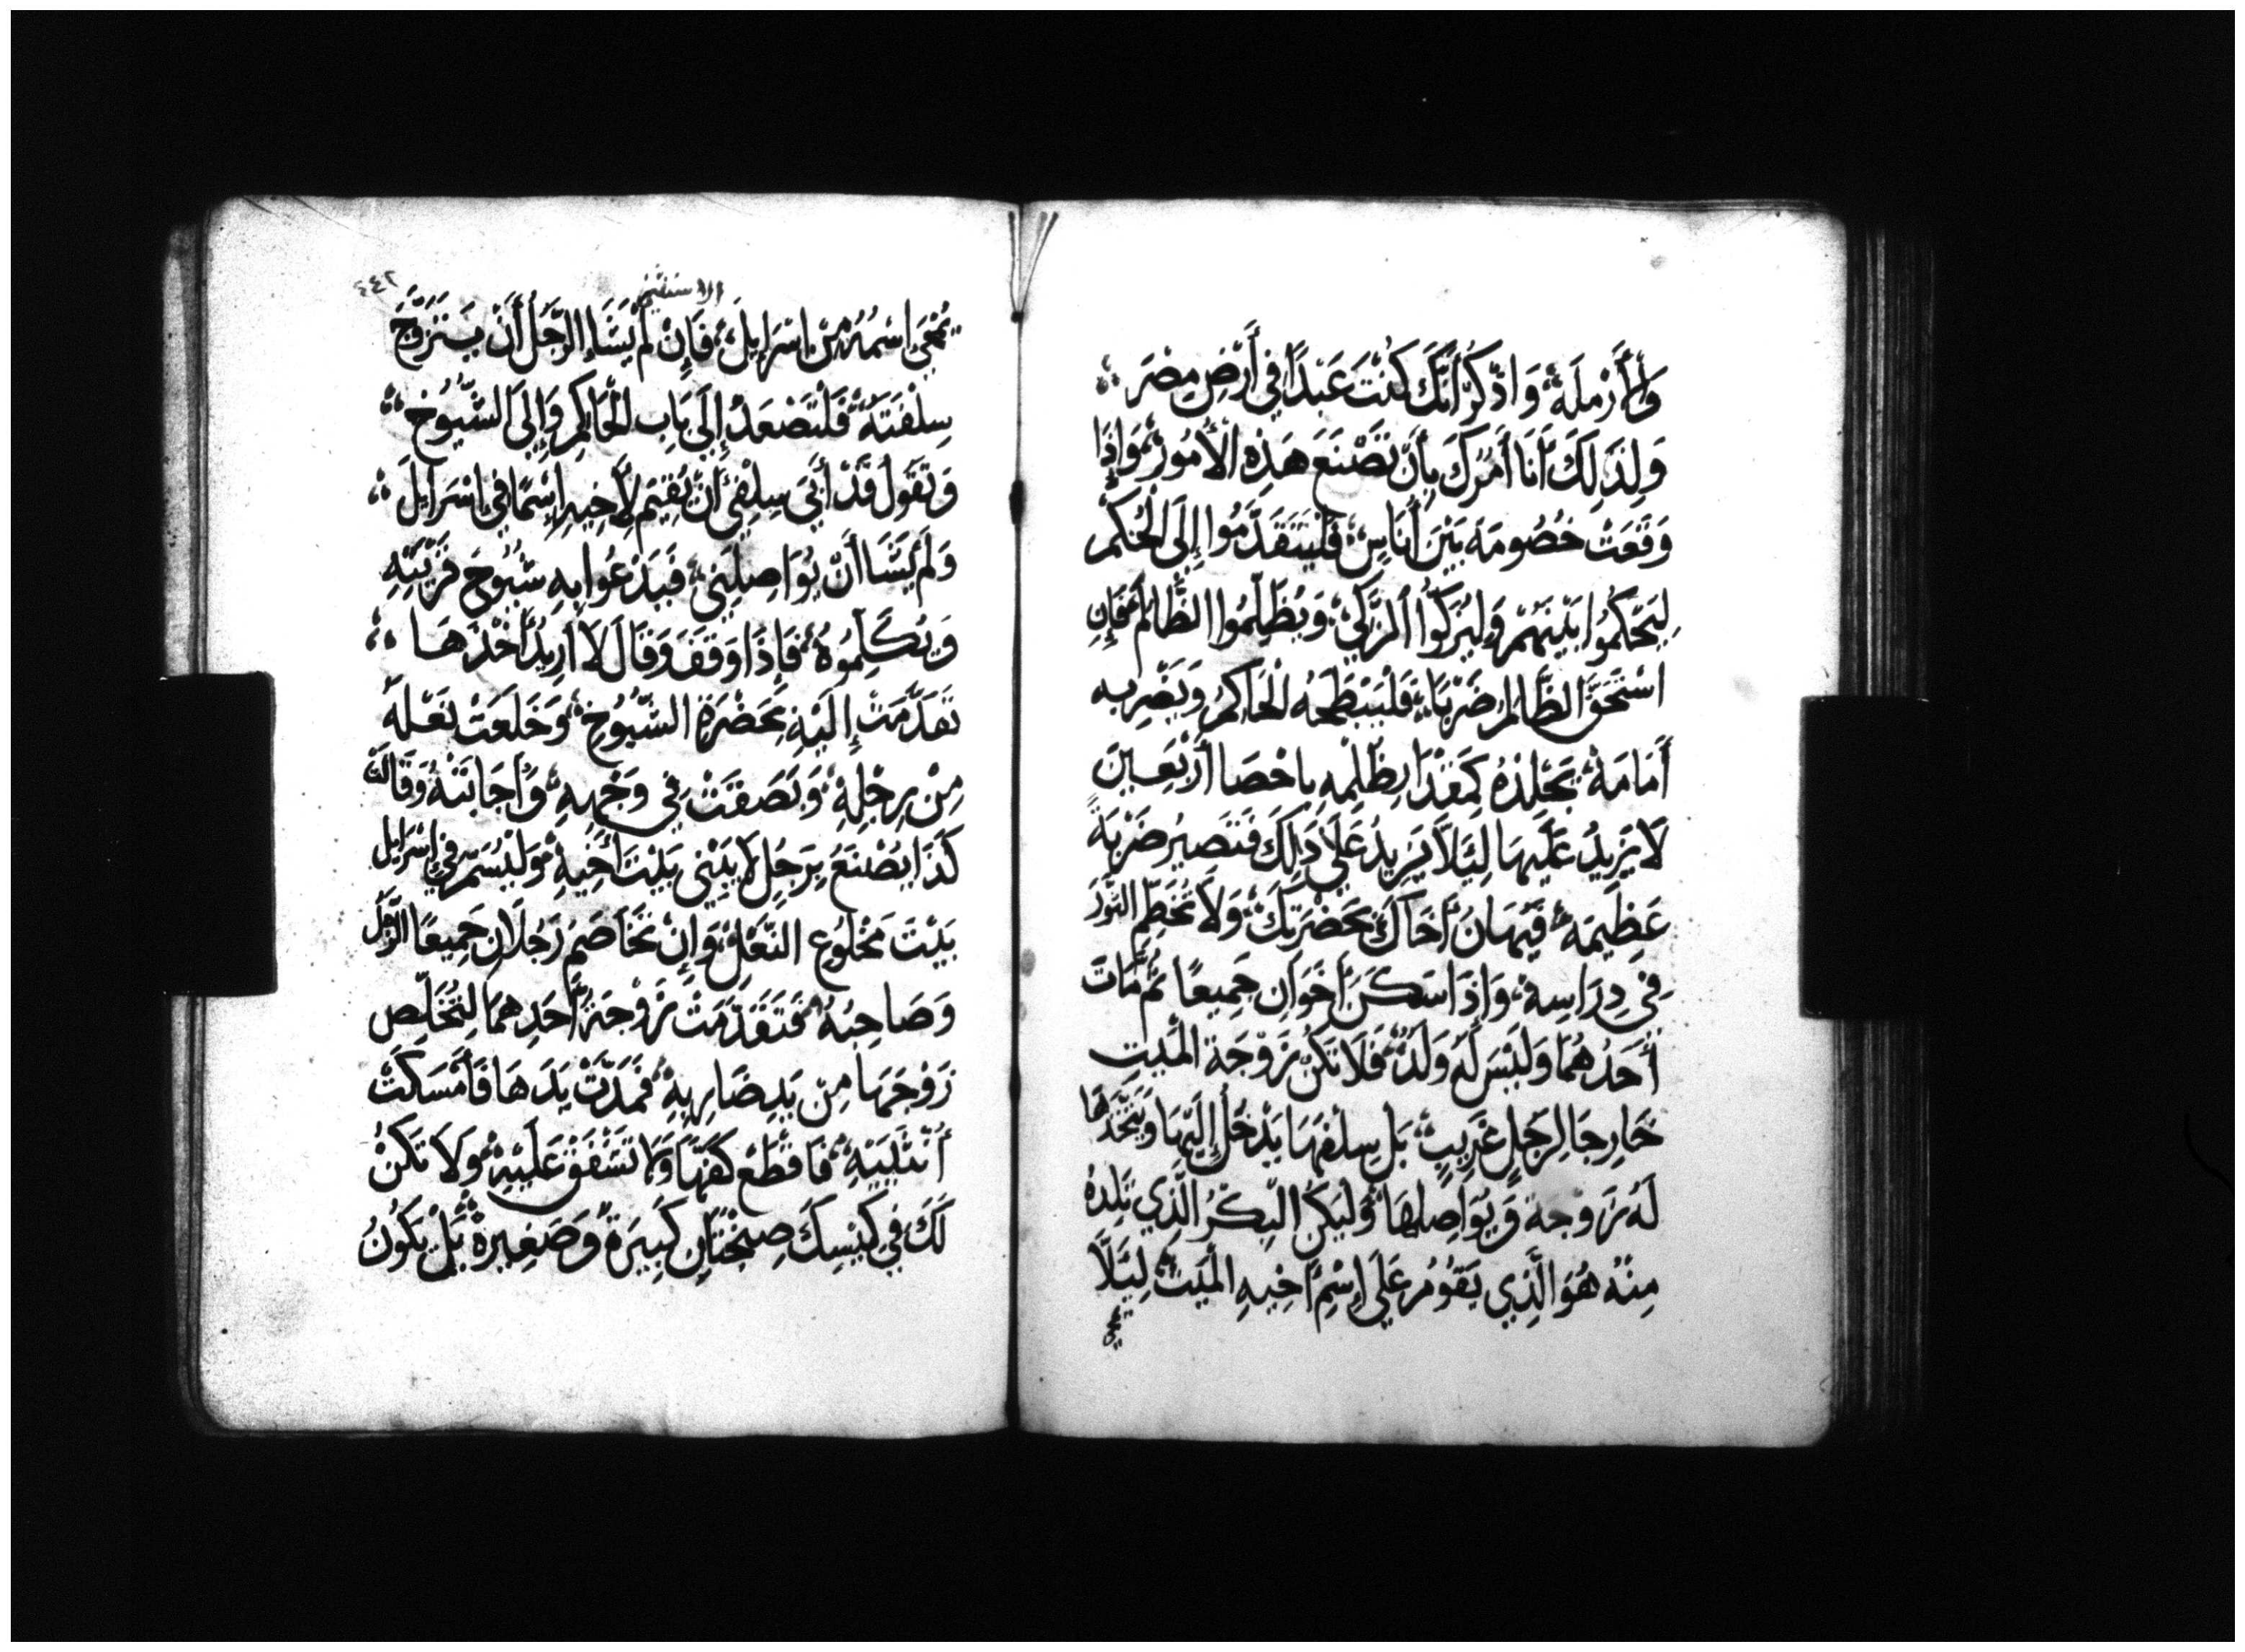 وَالأَرْمَلَة، وَاذْكُرْ أَنَّكَ كُنْتَ عَبْدًا فِي أَرْضِ مِصْرَ،
وَلِذَلِكَ أَنَا آمُرُكَ بِأَنْ تَصْنَعَ هَذِهِ الأُمُور، وَإِذَا
وَقَعَتْ خُصُومَة بَيْنَ أُنَاسٍ، فَلْيَتَقَدَّمُوا إِلَى الْحُكْمِ
لِيَحْكُمُوا بَيْنَهُمْ وَلِيُزَكُّوا الزَّكِيَّ، وَيُظَلِّمُوا الظَّالِمَ، فَإِنِ
اسْتَحَقَّ الظَّالِمُ ضَرْبًا، فَلْيَبْطَحْهُ الْحَاكِمُ وَيَضْرِبه
أَمَامَهُ، يَجْلِدُهُ كَمِقْدَارِ ظُلْمِهِ بِاحْصَا أَرْبَعِينَ
لَا يَزِيدُ عَلَيْهَا لِئَلَّا يَزِيدُ عَلَى ذَلِكَ فَتَصِيرُ ضَرْبَةً
عَظِيمَة، فَيُهَانُ أَخَاكَ بِحَضْرَتِكَ، وَلَا تَخْطِمِ الثَّوْرَ
فِي دِرَاسِهِ، وَإِذَا سَكَنَ أَخَوَانِ جَمِيعًا ثُمَّ مَاتَ
أَحَدُهُمَا وَلَيْسَ لَهُ وَلَدٌ، فَلَا تَكُنْ زَوْجَةَ الْمَيِّتِ
خَارِجًا لِرَجُلٍ غَرِيبٍ، بَلْ سِلْفُهَا يَدْخُلُ إِلَيْهَا وَيَتَّخِذُهَا
لَهُ زَوْجَة وَيُوَاصِلهَا، وَلْيَكُنِ الْبِكْرُ الَّذِي تَلِدُهُ
مِنْهُ هُوَ الَّذِي يَقُومُ عَلَى إِسْمِ أَخِيهِ الْمَيِّت، لِئَلَّا
الاستثنى
٤٤٢
يُمْحَى إِسْمُهُ مِنْ إِسْرَايِيلَ، فَإِنْ لَمْ يَشَا الرَّجُلُ أَنْ يَتَزَوَّجَ
سِلْفَتَهُ، فَلْتَصْعَدْ إِلَى بَابِ الْحَاكِمِ وَإِلَى الشُّيُوخِ،
وَتَقُول قَدْ أَبَى سِلْفِي أَنْ يُقِيمَ لِأَخِيهِ إِسْمًا فِي إِسْرَايِيلَ،
وَلَمْ يَشَا أَنْ يُوَاصِلَنِي، فَيَدْعُوا بِهِ شُيُوخَ قَرْيَتِهِ
وَيُكَلِّمُوهُ، فَإِذَا وَقَفَ وَقَالَ لَا ارِيدُ اخْذَهَا،
تَقَدَّمَتْ إِلَيْهِ بِحَضْرَةِ الشُّيُوخِ، وَخَلَعَتْ نَعْلَهُ
مِنْ رِجْلِهِ، وَبَصَقَتْ فِي وَجْهِهِ، وَأَجَابَتْهُ وَقَالَتْ
كَذَا يُصْنَعُ بِرَجُلٍ لَا يَبْنِي بَيْتَ أَخِيهِ، وَلْيُسَمَّ فِي إِسْرَايِيل
بَيْتَ مَخْلُوعِ النَّعْلِ، وَإِنْ تَخَاصَمَ رَجُلَانِ جَمِيعًا الرَّجُلُ
وَصَاحِبُهُ، فَتَقَدَّمَتْ زَوْجَةُ أَحَدِهِمَا لِتُخَلِّصَ
زَوْجَهَا مِنْ يَدِ ضَارِبِهِ، فَمَدَّتْ يَدَهَا فَأَمْسَكَتْ
أُنْثَيَيْهِ، فَاقْطَعْ كَفَّهَا وَلَا تَشْفَقْ عَلَيْهِ، وَلَا تَكُنْ
لَكَ فِي كِيسِكَ صِنْجَتَانِ كَبِيرَةً وَصَغِيرَة، بَلْ يَكُونُ